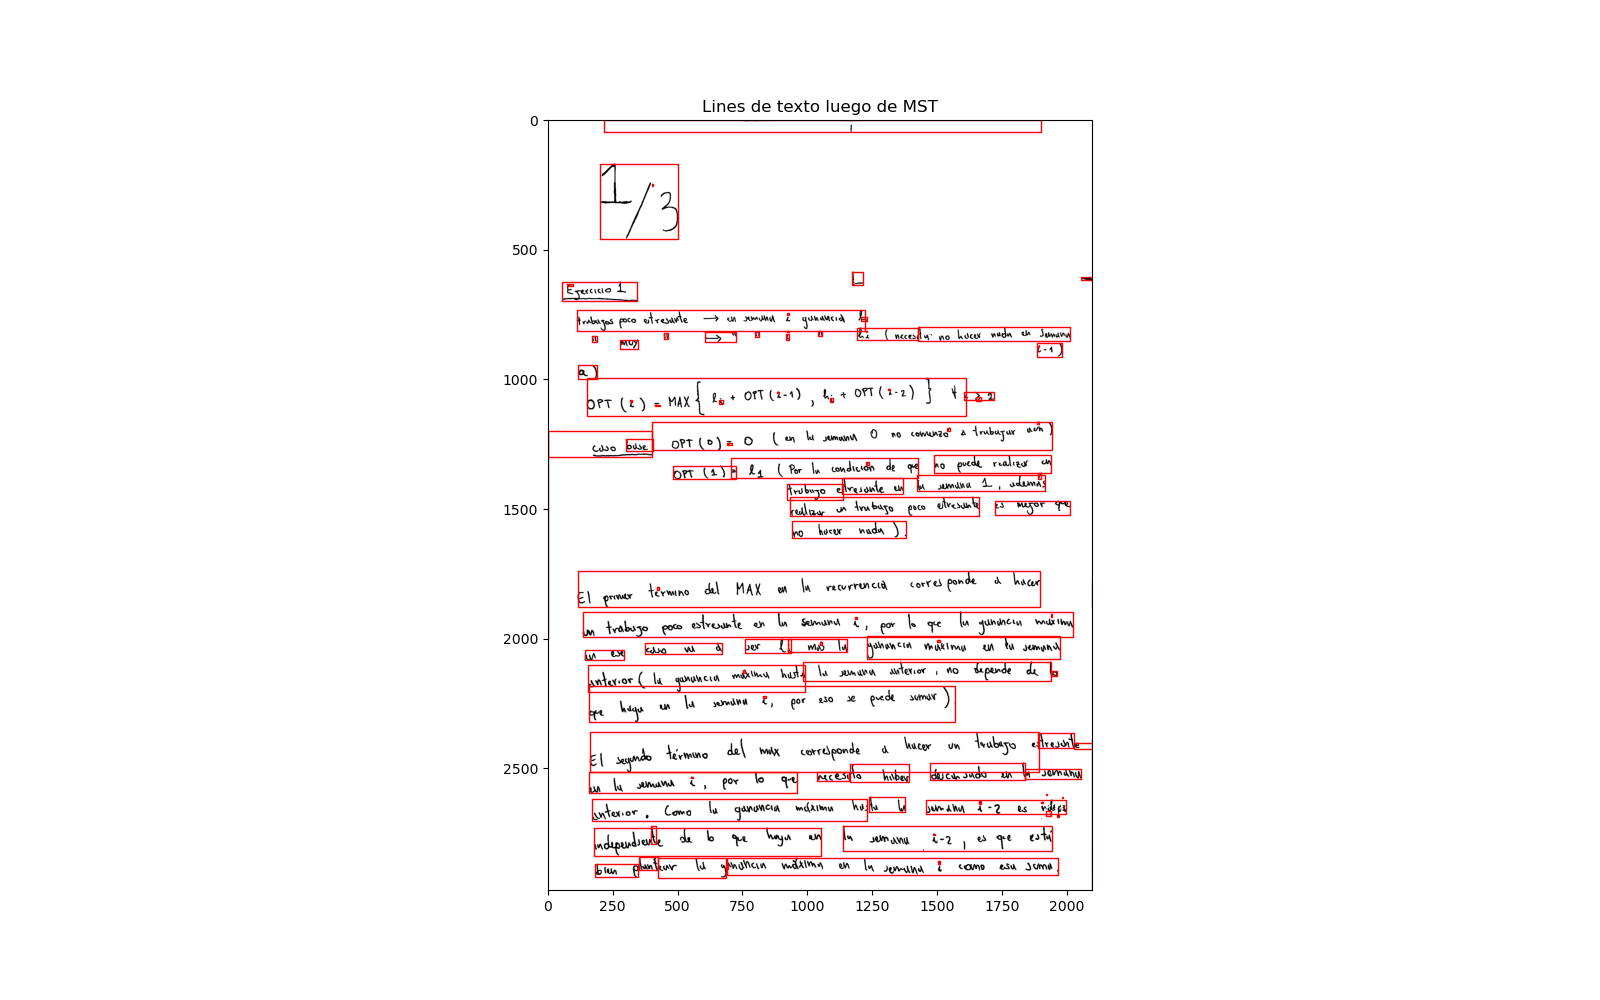 Lines de texto luego de MST
0
500
1000
1500
2000
2500
1/3
Ejercicio 1
trabajos poco estresante → en semana i ganancia li
" muy " → " " " " hi (necesita no hacer nada en semana
i-1)
a)
OPT (i) = MAX { li + OPT (i-1) , hi + OPT (i-2) } ∀ i ≥ 2
caso base OPT (0) = 0 (en la semana 0 no comenzó a trabajar aún)
OPT (1) = l1 (Por la condición de que no puede realizar un
trabajo estresante en la semana 1, además
realizar un trabajo poco estresante es mejor que
no hacer nada).
El primer término del MAX en la recurrencia corresponde a hacer
un trabajo poco estresante en la semana i, por lo que la ganancia máxima
en ese caso va a ser li más la ganancia máxima en la semana
anterior (la ganancia máxima hasta la semana anterior, no depende de lo
que haga en la semana i, por eso se puede sumar).
El segundo término del max corresponde a hacer un trabajo estresante
en la semana i, por lo que necesito haber descansado en la semana
anterior. Como la ganancia máxima hasta la semana i-2 es
independiente de lo que haga en la semana i-2, es que está
bien plantear la ganancia máxima en la semana i como esa suma.
0 250 500 750 1000 1250 1500 1750 2000